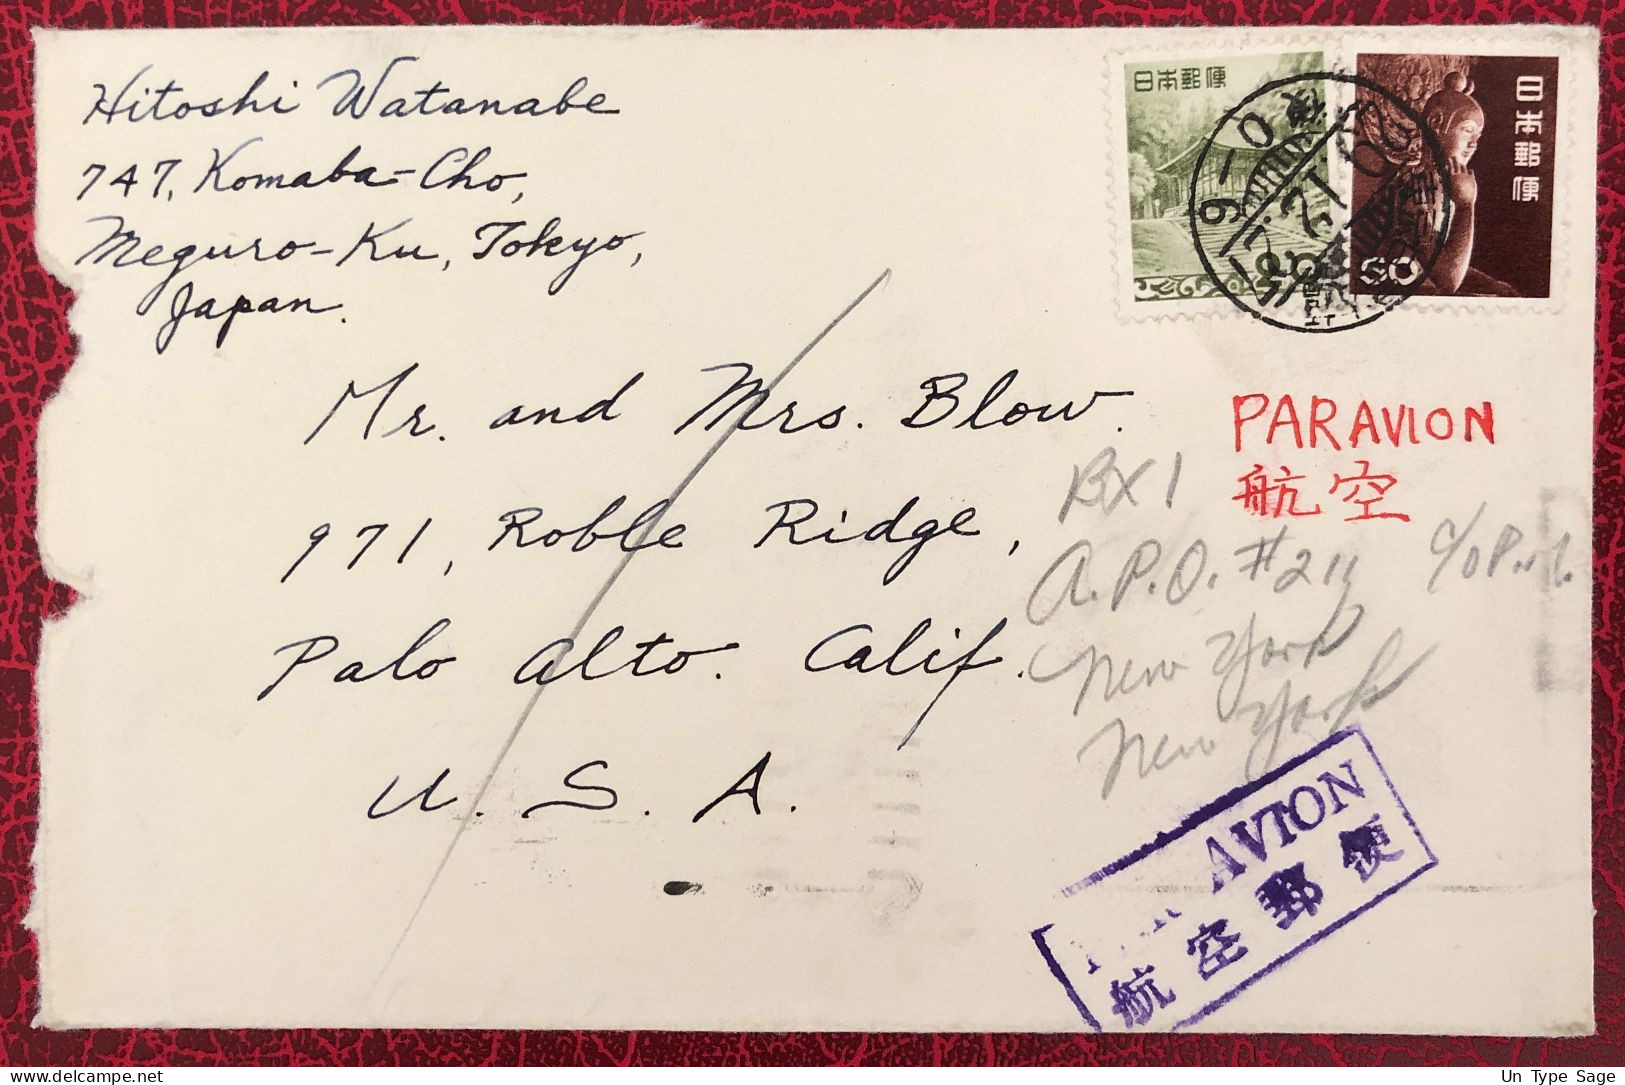 Hitoshi Watanabe
747, Komaba-Cho,
Meguro-Ku, Tokyo,
Japan.
日本郵便
日本郵便
Mr. and Mrs. Blow.
971, Roble Ridge,
Palo Alto. Calif.
U. S. A.
PAR AVION
航空
BX 1
A.P.O. #211 c/o P.M.
New York
New York
AVION
航空郵便
Un Type Sage